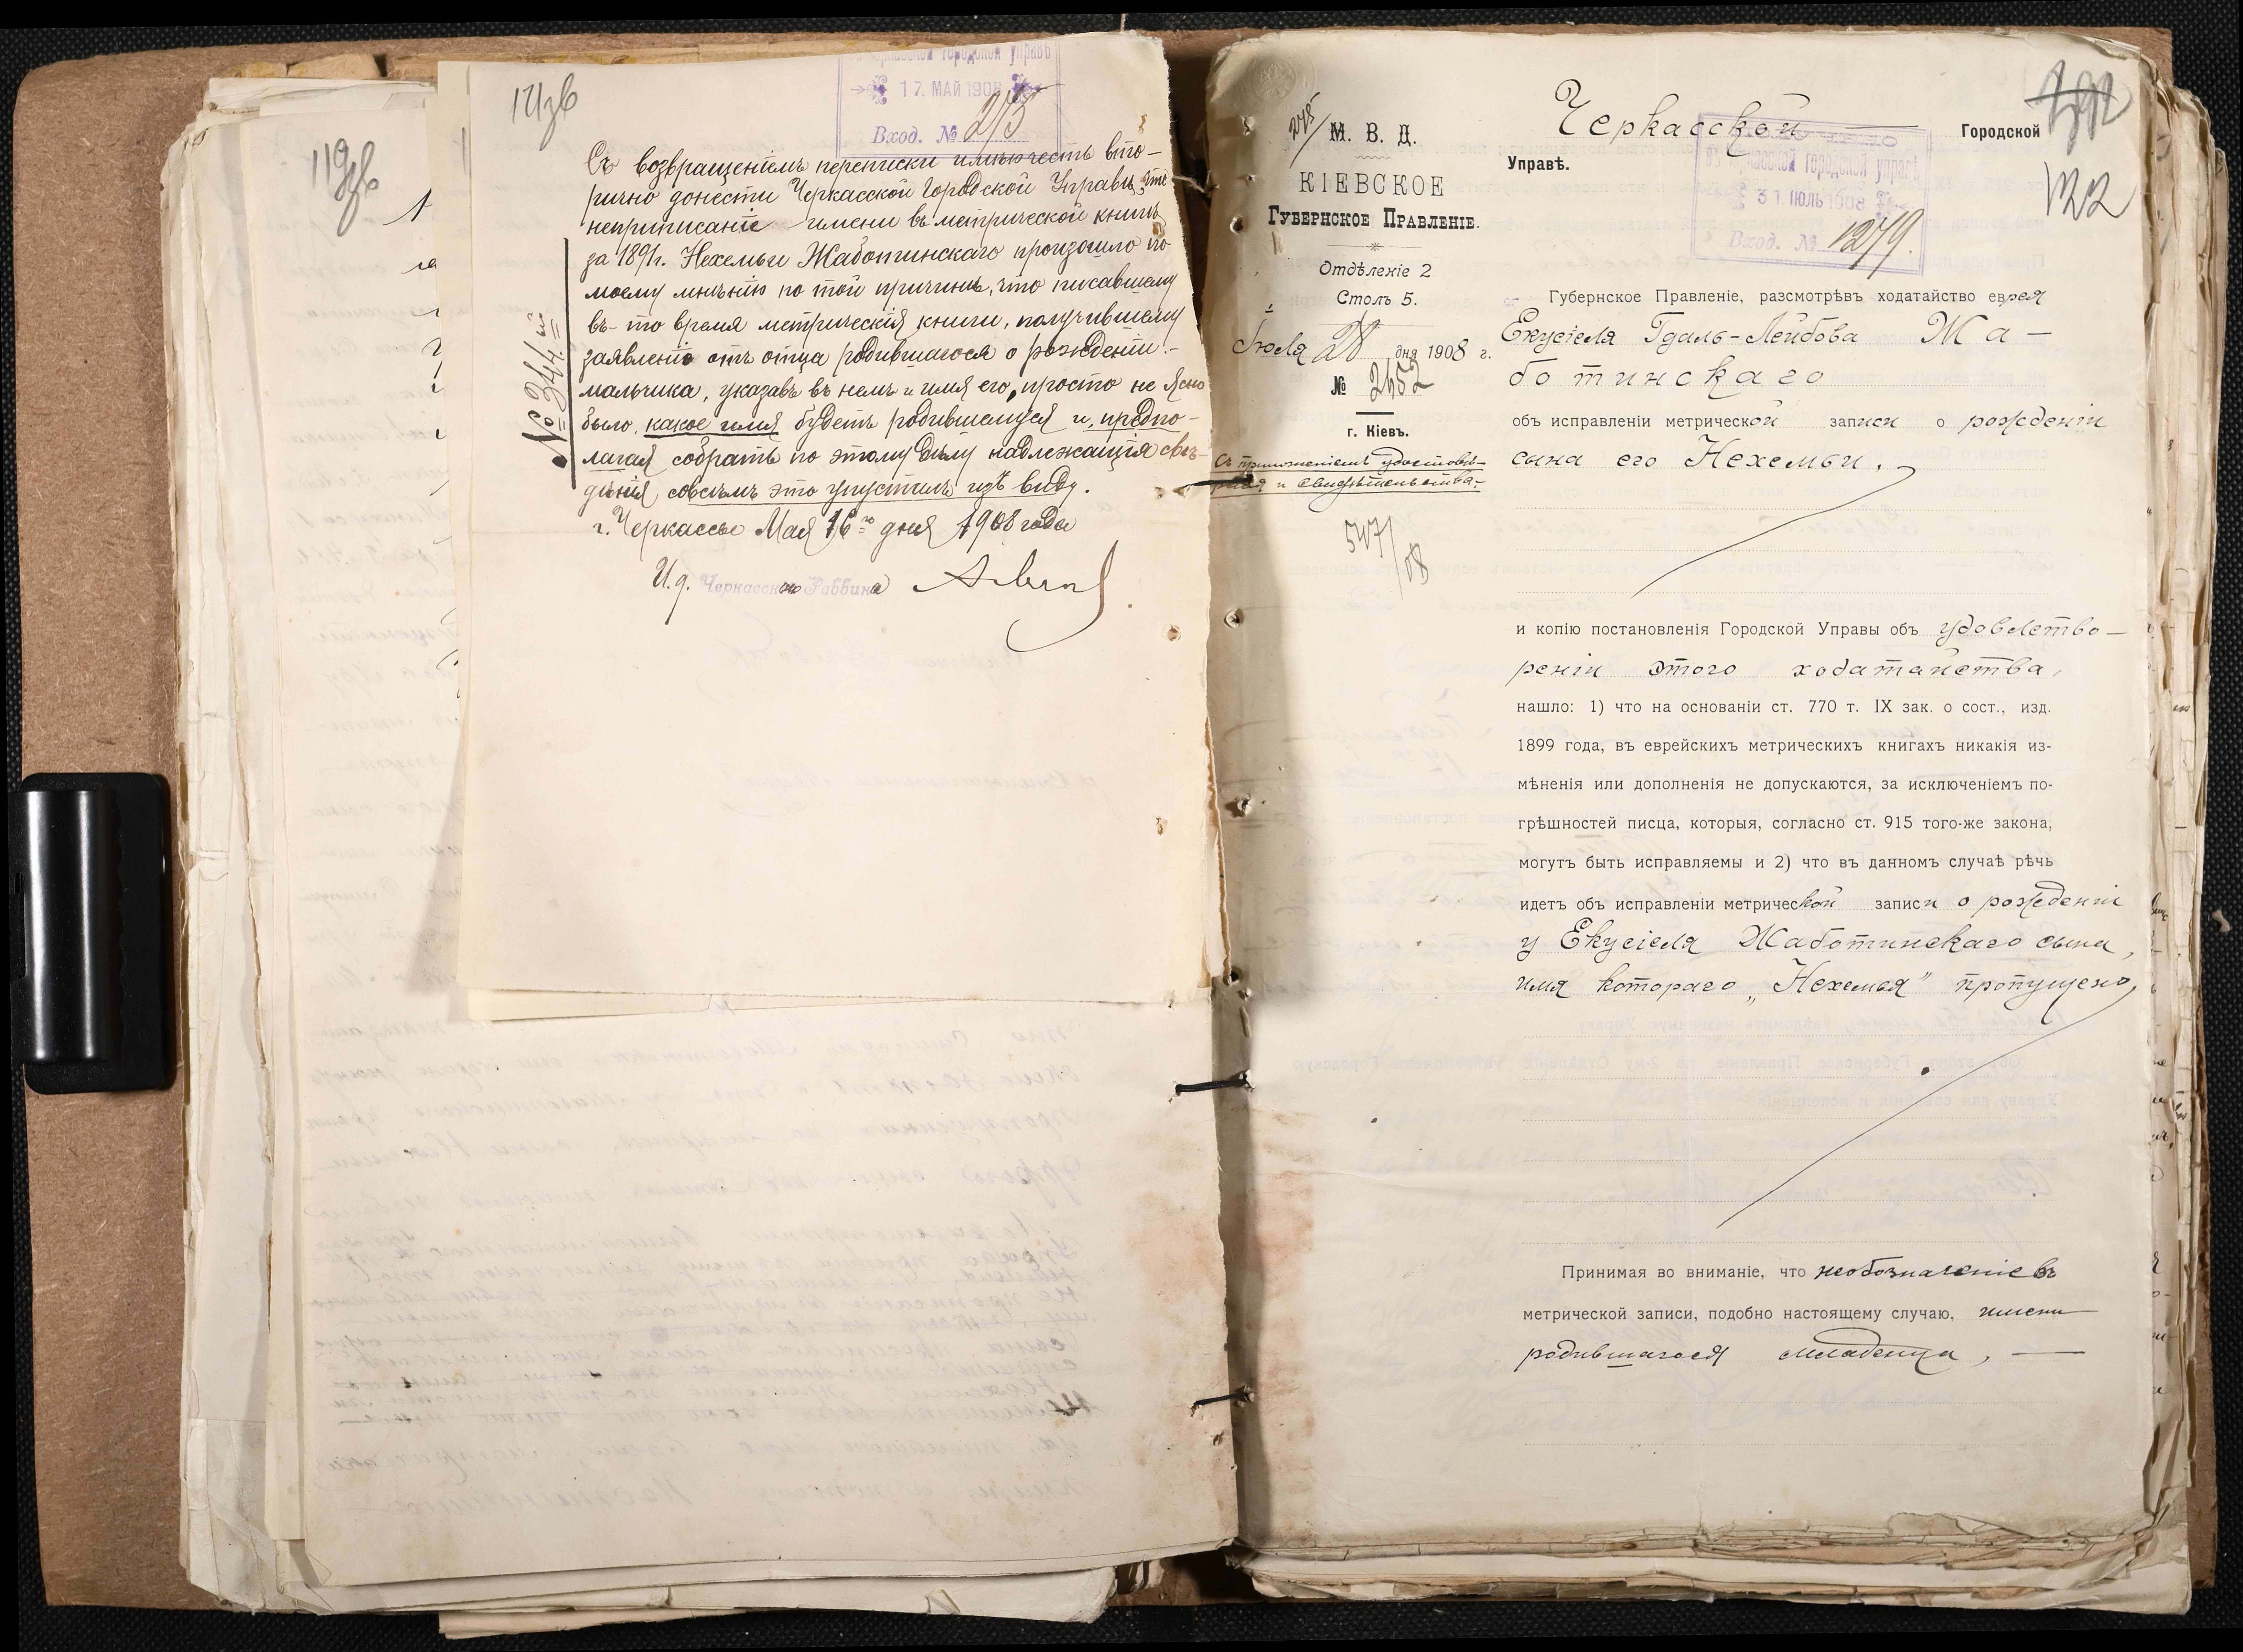 119об
121об
въ Черкасской городской управѣ
17. МАЙ 1908
Вход. № 273
Съ возвращеніемъ переписки имѣю честь вто-
рично донести Черкасской Городской Управѣ, что
неприписаніе имени въ метрической книгѣ
за 1891г. Нехемьи Жаботинскаго произошло по
моему мнѣнію по той причинѣ, что писавшему
въ то время метрическія книги, получившему
заявленіе отъ отца родившагося о рожденіи
мальчика, указавъ въ немъ и имя его, просто не ясно
было, какое имя будетъ родившемуся и, предпо-
лагая собрать по этому дѣлу надлежащія свѣ-
дѣнія, совсѣмъ это упустилъ изъ виду.
г. Черкассы Мая 16го дня 1908 года
И.д. Черкасскаго Раббина
№ 344й
М. В. Д.
КІЕВСКОЕ
ГУБЕРНСКОЕ ПРАВЛЕНІЕ.
Отдѣленіе 2
Столъ 5.
Іюля 28 дня 1908 г.
№ 2452
г. Кіевъ.
Съ приложеніемъ удостовѣ-
ренія и свидѣтельства.
547/08
Черкасской Городской
Управѣ.
122
въ Черкасской городской управѣ
31. ІЮЛЬ 1908
Вход. № 1279.
Губернское Правленіе, разсмотрѣвъ ходатайство еврея
Екусіеля Гдаль-Лейбова Жа-
ботинскаго
объ исправленіи метрической записи о рожденіи
сына его Нехемьи,
и копію постановленія Городской Управы объ удовлетво-
реніи этого ходатайства,
нашло: 1) что на основаніи ст. 770 т. IX зак. о сост., изд.
1899 года, въ еврейскихъ метрическихъ книгахъ никакія из-
мѣненія или дополненія не допускаются, за исключеніемъ по-
грѣшностей писца, которыя, согласно ст. 915 того-же закона,
могутъ быть исправляемы и 2) что въ данномъ случаѣ рѣчь
идетъ объ исправленіи метрической записи о рожденіи
у Екусіеля Жаботинскаго сына,
имя котораго „Нехемья" пропущено,
Принимая во вниманіе, что необозначеніе въ
метрической записи, подобно настоящему случаю, имени
родившагося младенца,